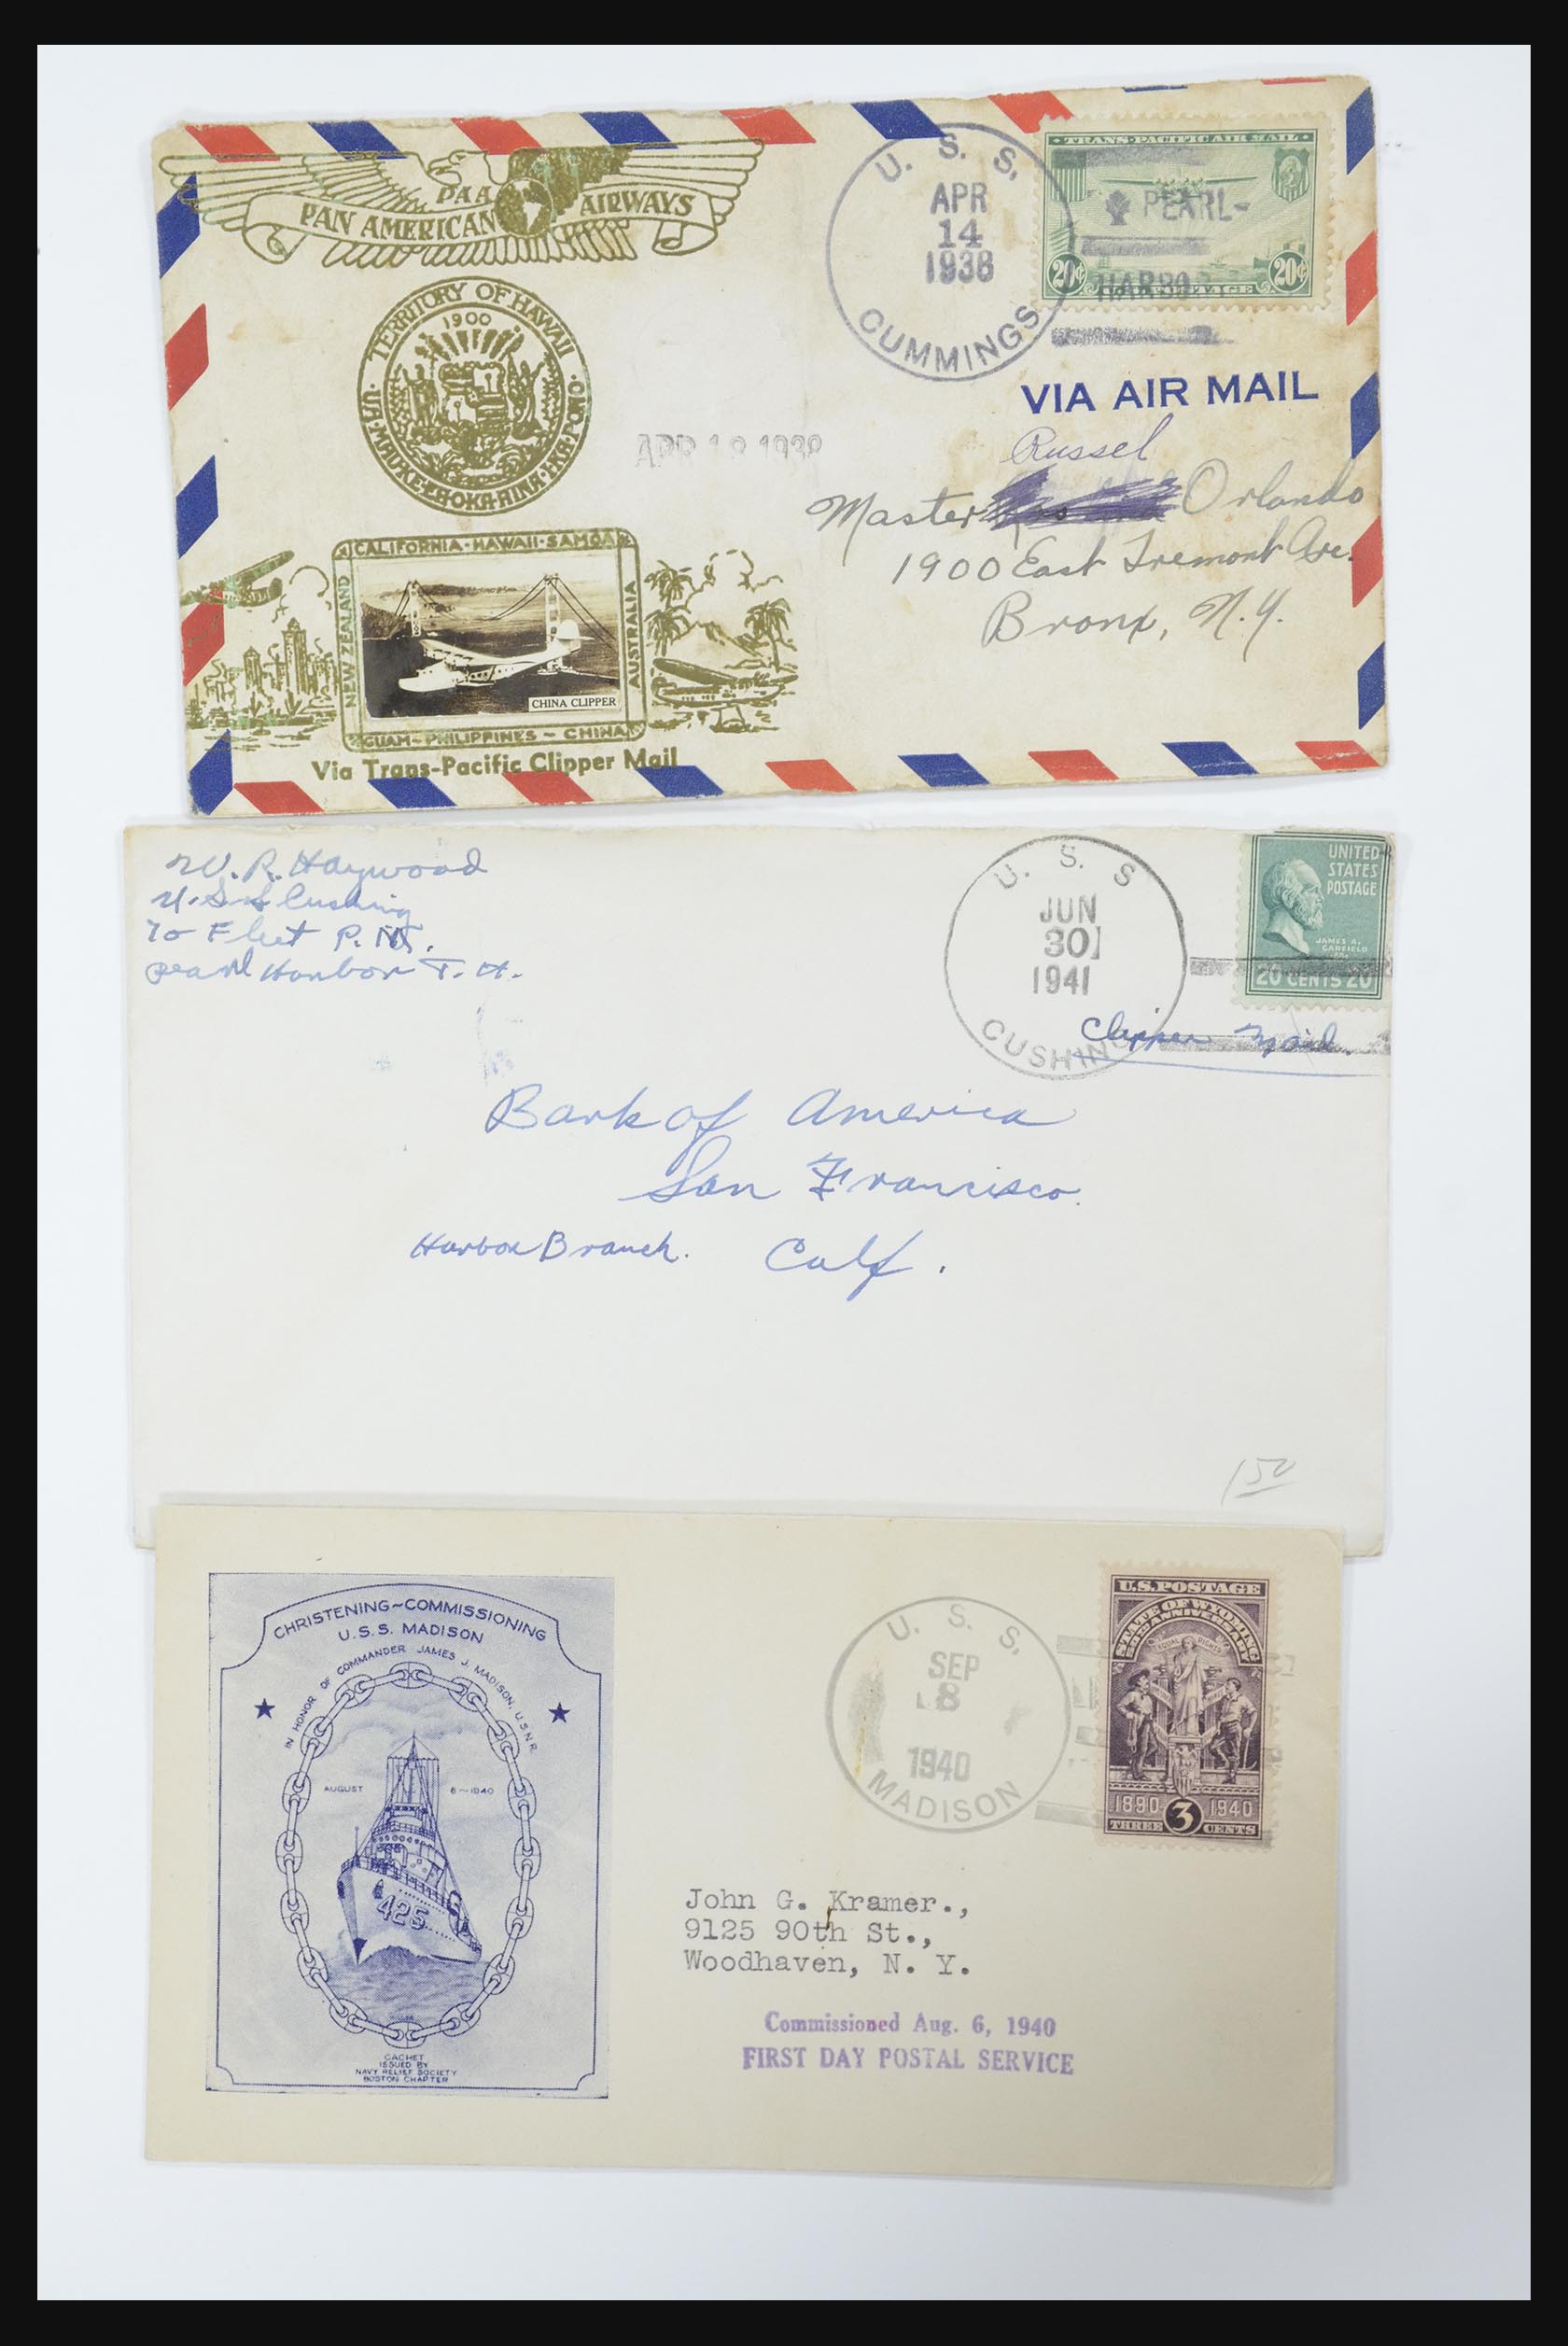 PAA
PAN AMERICAN AIRWAYS
TERRITORY OF HAWAII
1900
CALIFORNIA · HAWAII · SAMOA
NEW ZEALAND
AUSTRALIA
CHINA CLIPPER
GUAM - PHILIPPINES - CHINA
Via Trans-Pacific Clipper Mail
U. S. S.
APR
14
1938
CUMMINGS
TRANS-PACIFIC AIR MAIL
PEARL-
20¢ 20¢
VIA AIR MAIL
Russel
Master Orlando
1900 East Tremont Ave.
Bronx, N.Y.
W. R. Haywood
U.S.S Cushing
Pearl Harbor T. H.
U. S. S
JUN
30
1941
CUSHING
UNITED
STATES
POSTAGE
JAMES A.
GARFIELD
20 CENTS 20
Clipper Mail
Bank of America
San Francisco.
Harbor Branch. Calf.
150
CHRISTENING~COMMISSIONING
U.S.S. MADISON
IN HONOR OF COMMANDER JAMES J. MADISON, U.S.N.R.
AUGUST 6~1940
425
CACHET
ISSUED BY
NAVY RELIEF SOCIETY
BOSTON CHAPTER
U. S. S.
SEP
8
1940
MADISON
U.S. POSTAGE
STATE OF WYOMING
50TH ANNIVERSARY
EQUAL RIGHTS
1890 1940
THREE 3 CENTS
John G. Kramer.,
9125 90th St.,
Woodhaven, N. Y.
Commissioned Aug. 6, 1940
FIRST DAY POSTAL SERVICE